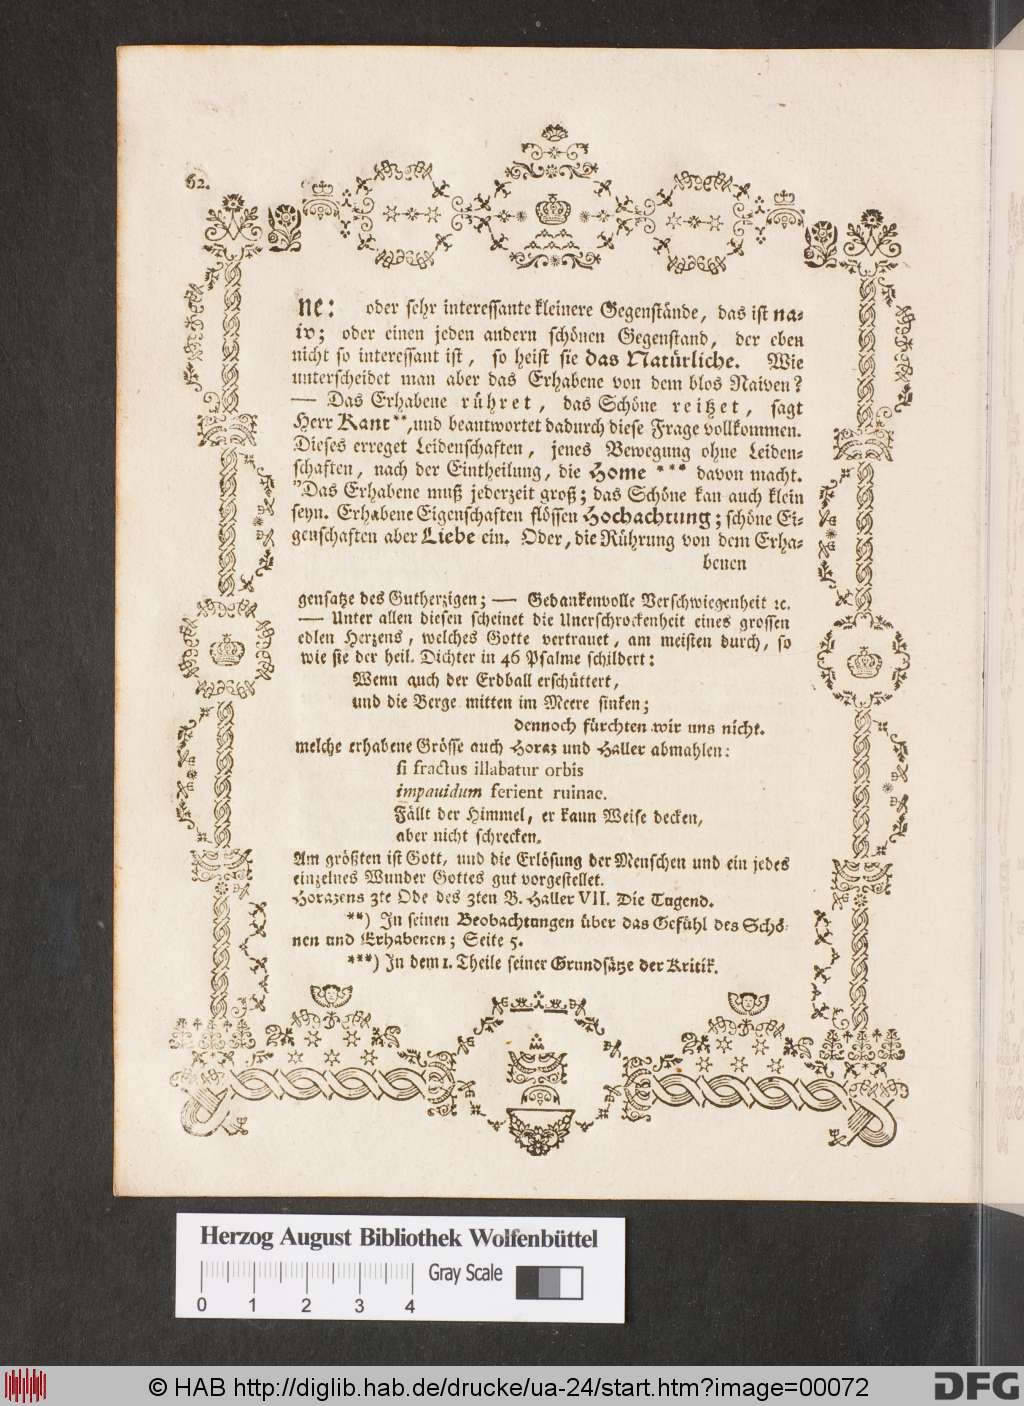 62.
ne: oder sehr interessante kleinere Gegenstände, das ist na-
iv; oder einen jeden andern schönen Gegenstand, der eben
nicht so interessant ist, so heist sie das Natürliche. Wie
unterscheidet man aber das Erhabene von dem blos Naiven?
— Das Erhabene rühret, das Schöne reitzet, sagt
Herr Kant**, und beantwortet dadurch diese Frage vollkommen.
Dieses erreget Leidenschaften, jenes Bewegung ohne Leiden-
schaften, nach der Eintheilung, die Home *** davon macht.
"Das Erhabene muß jederzeit groß; das Schöne kan auch klein
seyn. Erhabene Eigenschaften flössen Hochachtung; schöne Ei-
genschaften aber Liebe ein. Oder, die Rührung von dem Erha-
benen
gensatze des Gutherzigen; — Gedankenvolle Verschwiegenheit ꝛc.
— Unter allen diesen scheinet die Unerschrockenheit eines grossen
edlen Herzens, welches Gotte vertrauet, am meisten durch, so
wie sie der heil. Dichter in 46 Psalme schildert:
Wenn auch der Erdball erschüttert,
und die Berge mitten im Meere sinken;
dennoch fürchten wir uns nicht.
welche erhabene Grösse auch Horaz und Haller abmahlen:
si fractus illabatur orbis
impauidum ferient ruinae.
Fällt der Himmel, er kann Weise decken,
aber nicht schrecken.
Am größten ist Gott, und die Erlösung der Menschen und ein jedes
einzelnes Wunder Gottes gut vorgestellet.
Horazens 3te Ode des 3ten B. Haller VII. Die Tugend.
**) In seinen Beobachtungen über das Gefühl des Schö-
nen und Erhabenen; Seite 5.
***) In dem 1. Theile seiner Grundsätze der Kritik.
Herzog August Bibliothek Wolfenbüttel
Gray Scale
0 1 2 3 4
© HAB http://diglib.hab.de/drucke/ua-24/start.htm?image=00072
DFG